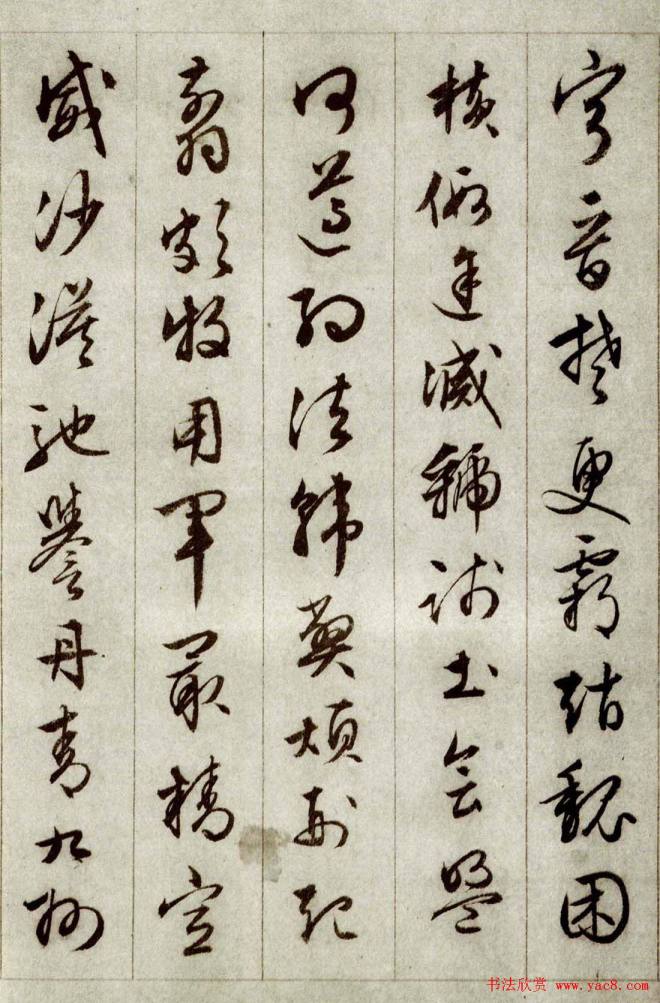 寧晉楚更霸趙魏困
橫假途滅虢踐土會盟
何遵約法韓弊煩刑起
翦頗牧用軍最精宣
威沙漠馳譽丹青九州
书法欣赏 www.yac8.com